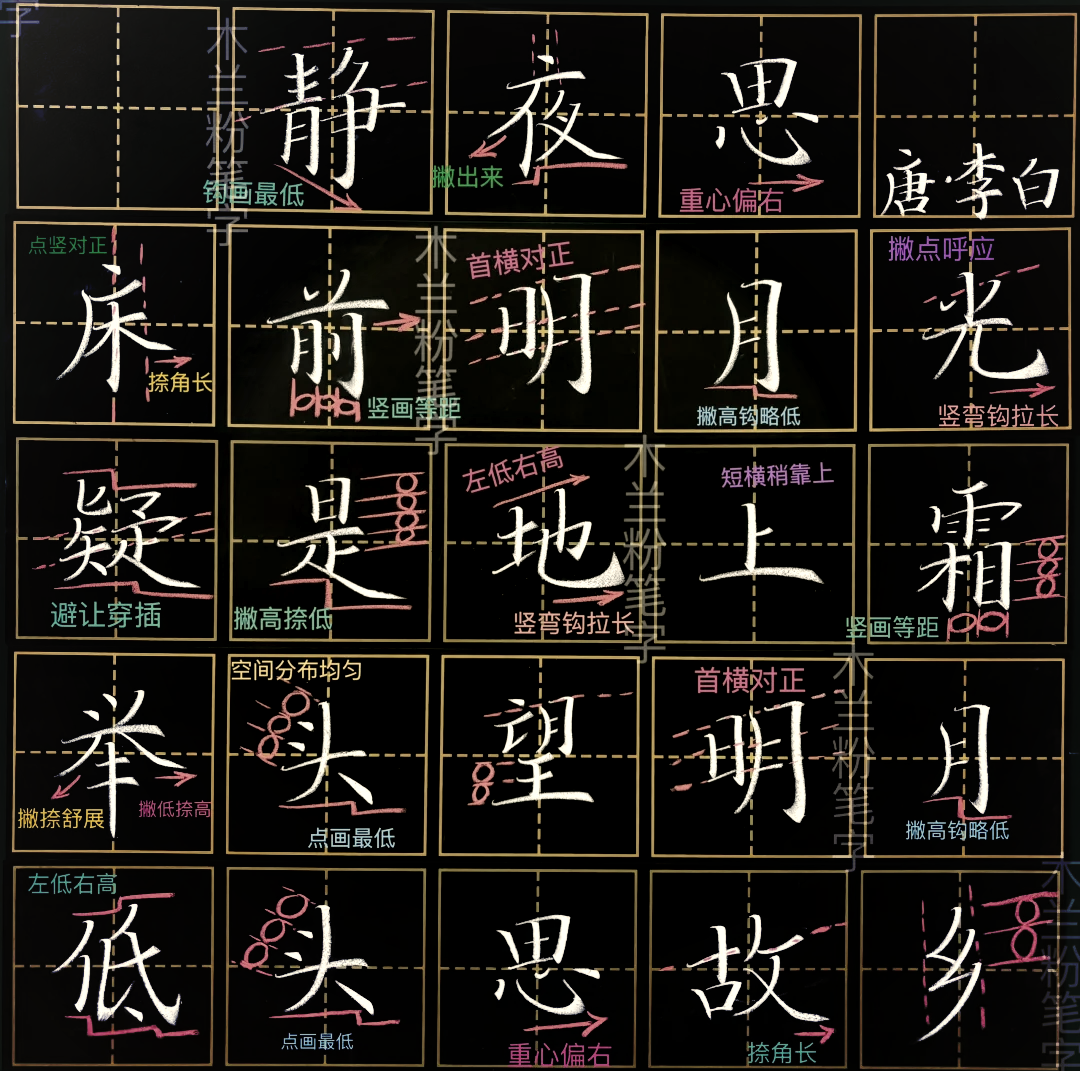 静夜思
唐·李白
钩画最低
撇出来
重心偏右
床前明月光
点竖对正
捺角长
竖画等距
首横对正
撇高钩略低
撇点呼应
竖弯钩拉长
疑是地上霜
避让穿插
撇高捺低
左低右高
竖弯钩拉长
短横稍靠上
竖画等距
举头望明月
撇捺舒展
撇低捺高
空间分布均匀
点画最低
首横对正
撇高钩略低
低头思故乡
左低右高
点画最低
重心偏右
捺角长
木兰粉笔字
木兰粉笔字
木兰粉笔字
木兰粉笔字
木兰粉笔字
字